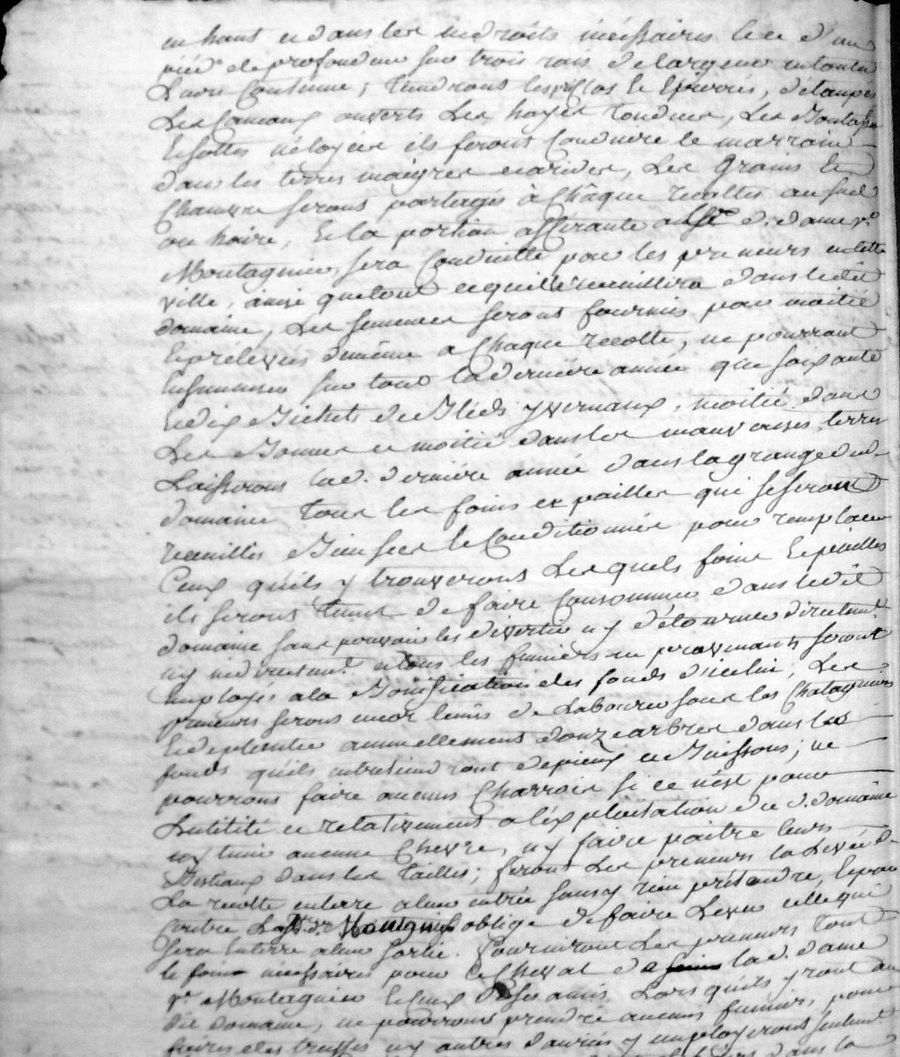 en haut et dans les endroits nécessaires lae d'un
pied de profondeur sur trois rais de largeur
Continue; tiendront les et Epierrés,
Les Caneaux ouverts Les hayes tondues, Les
Et nétoyées ils feront Conduire le marrain
dans les terres maigres et arides, Les Grains Et
Chanvre seront partagés à Châque recoltes au
ou haire, Et la portion afférante a d. dame ve.
Montagnier sera Conduitte par les preneurs en cette
ville, ainsi que tout ce quelle recüillira dans ledit
domaine, Les semences seront fournies par moitié
Et prélevées de même a Chaque recolte, ne pourront
Ensemencer sur tout la dernière année que soixante
Et dix Bichets de Bleds yvernaux, moitié dans
Les Bonnes et moitié dans les mauvaises terres
Laisseront lad. dernière année dans la grange dud.
domaine tous les foins et pailles qui se seront
recuillies Bien secs et Conditionnés pour remplacer
Ceux quils y trouverons Les quels foins Et pailles
ils seront tenus de faire Consommer dans ledit
domaine sans pouvoir les divertir ny détourner directemt.
ny indirectemt. et tous les fumiers en provenants seront
employés a la Bonification des fonds d'icelui, Les
preneurs seront encor tenüs de Labourer sous les Chatagniers
Et de planter annuellement donze arbres dans les
fonds quils entretiendront de pieux et Buissons; ne
pourront faire aucuns Charrois si ce n'est pour
Lutilité et relativement a léxploitation du d. domaine
ny tenir aucune Chevre, ny faire paitre leurs
Bestiaux dans les Tailles; feront Les preneurs la Levée de
La recolte enterre a leur entrée sans y rien prétendre, Et par
Contre La de Montagnier oblige de faire Lever celle qui
sera Enterre a leur sortie. Fourniront Les preneurs tout
le foin nécessaire pour le Cheval de lad. dame
ve. Montagnier Et ceux de ses amis Lors quils yront au
dit domaine, ne pourront prendre aucuns fumiers, pour
faire des truffes ny autres denrées y employeront seulemt.
dans la